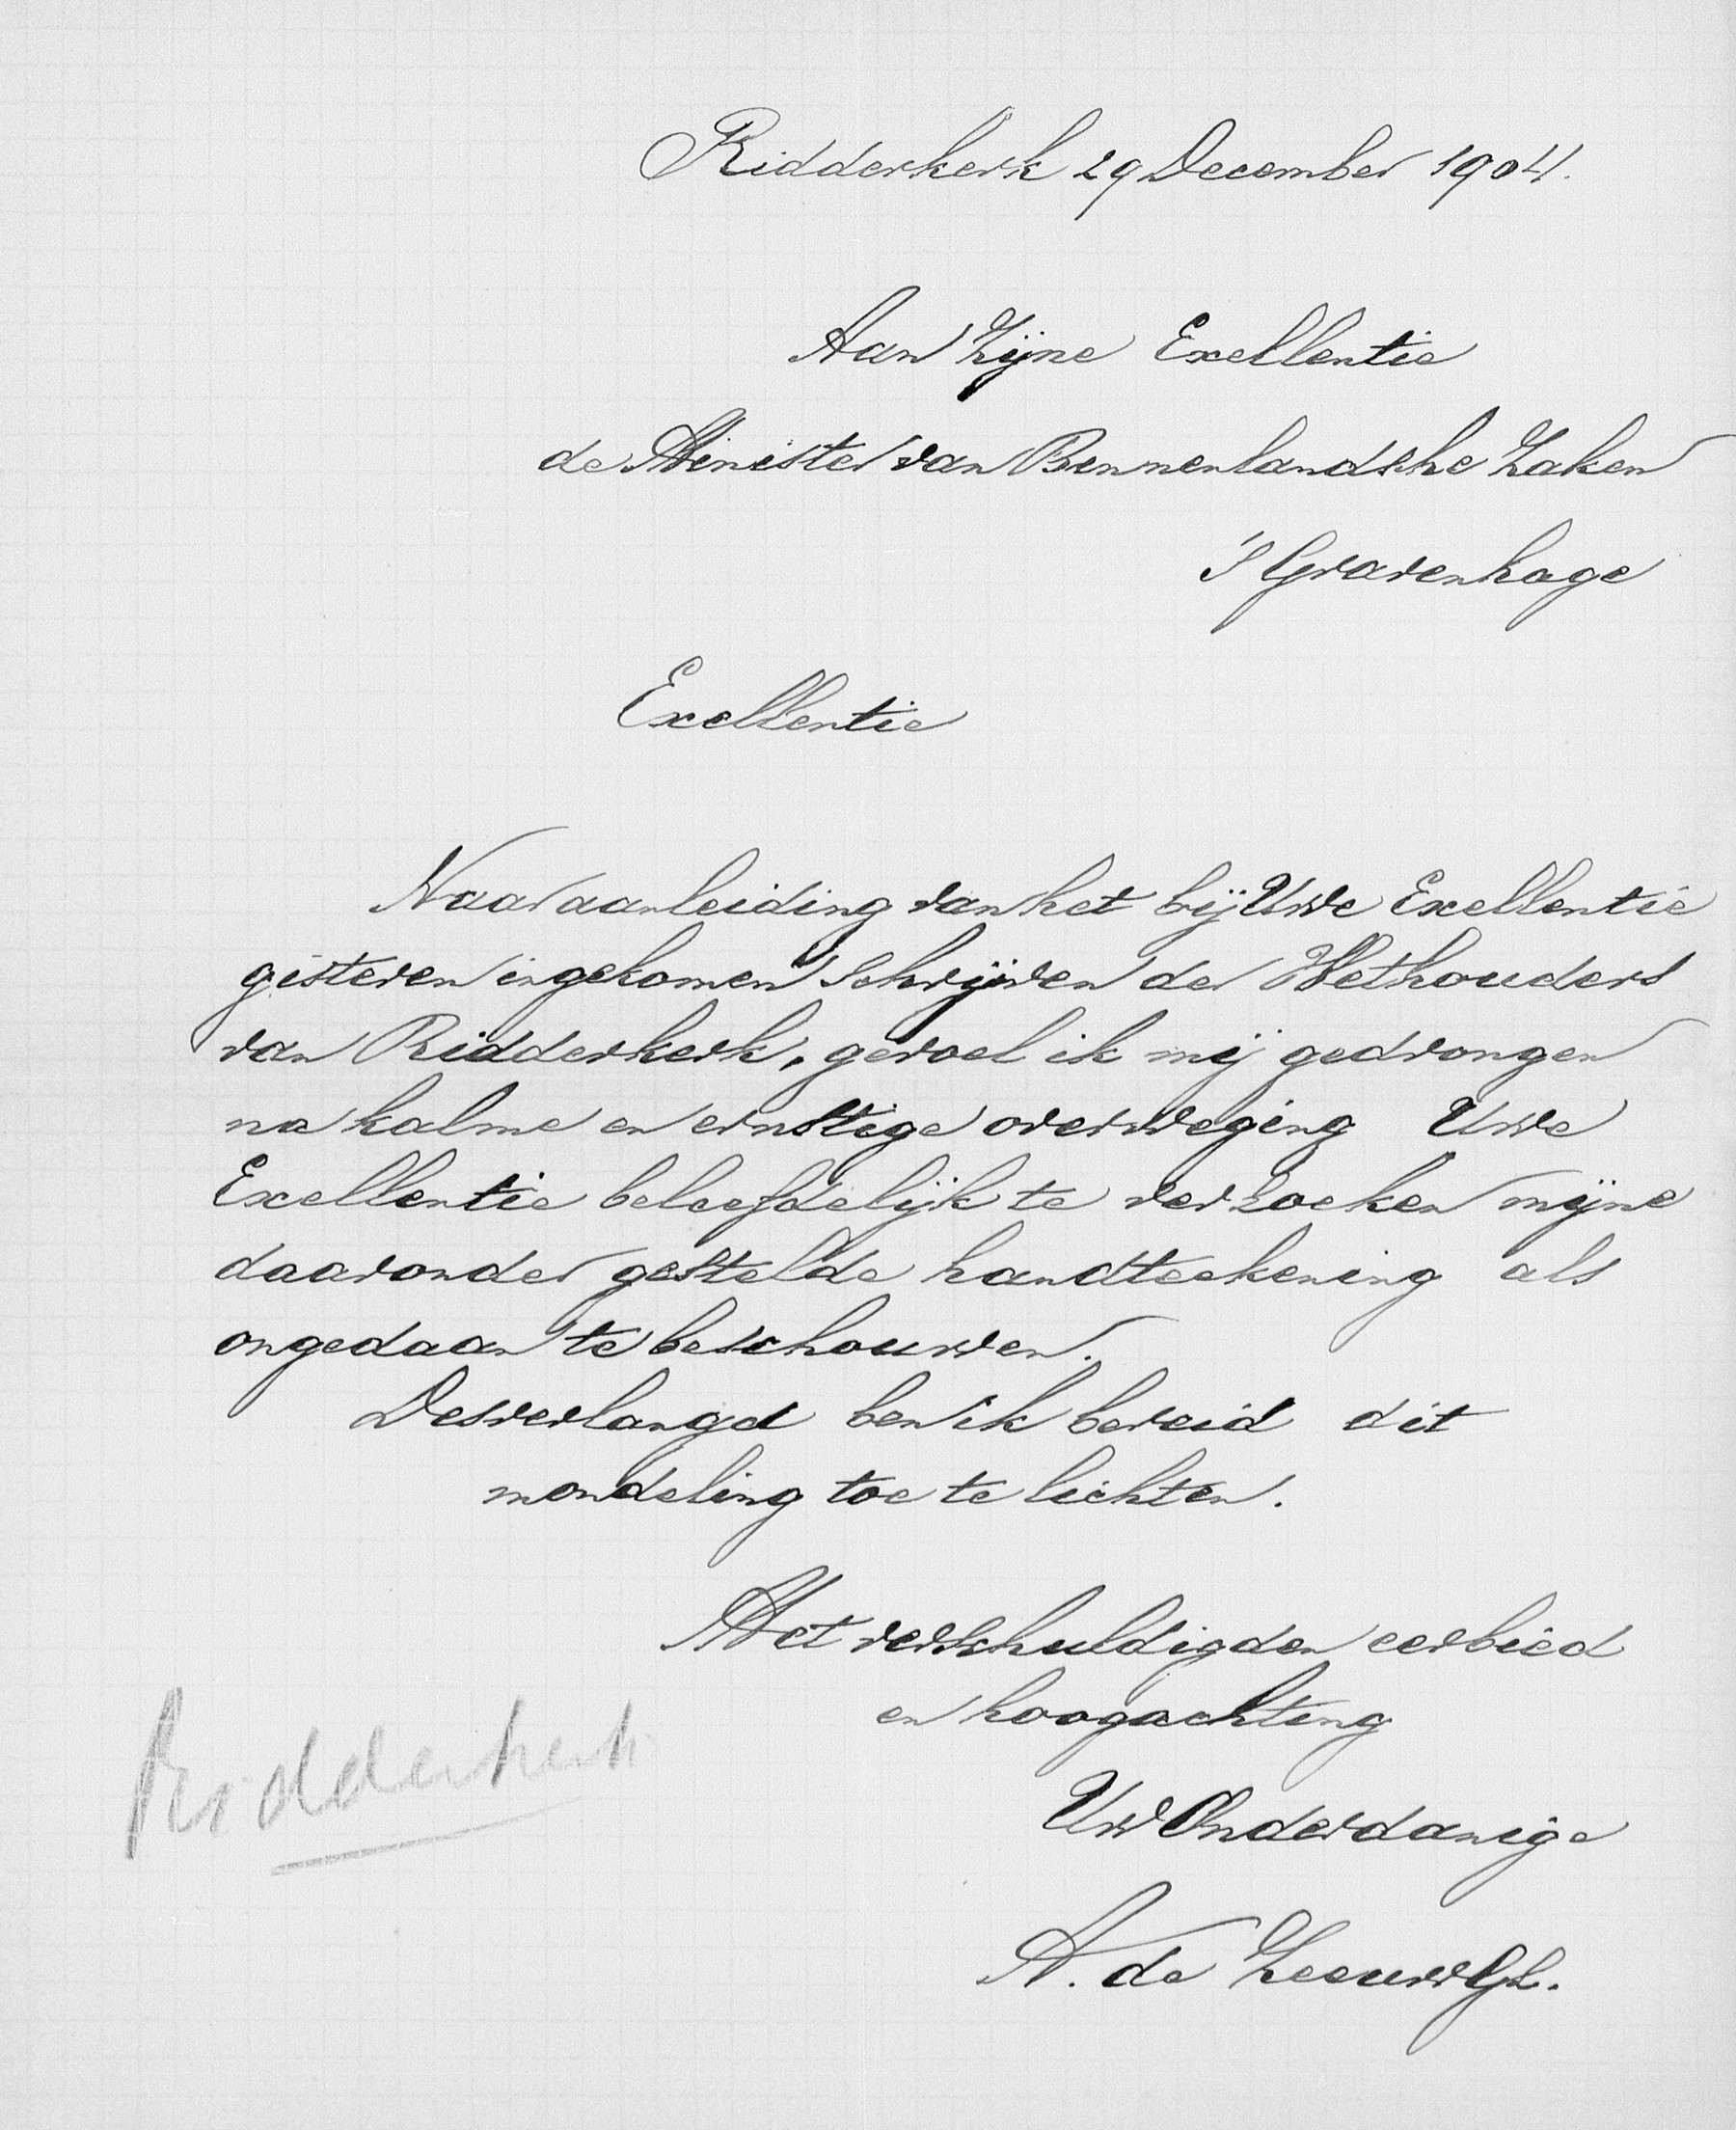 Ridderkerk 29 December 1904.
Aan Zijne Exellentie
de Minister van Bennenlandsche Zaken
's Gravenhage
Exellentie
Naar aanleiding van het bij Uwe Exellentie
gisteren ingekomen Schrijven der Wethouders
van Ridderkerk, gevoel ik mij gedrongen
na kalme en ernstige overweging Uwe
Exellentie beleefdelijk te verzoeken mijne
daaronder gestelde handteekening als
ongedaan te beschouwen.
Desverlangd ben ik bereid dit
mondeling toe te lichten.
Met verschuldigden eerbied
en hoogachting
Uw Onderdanige
A. de Zeeuw Gz.
Ridderkerk